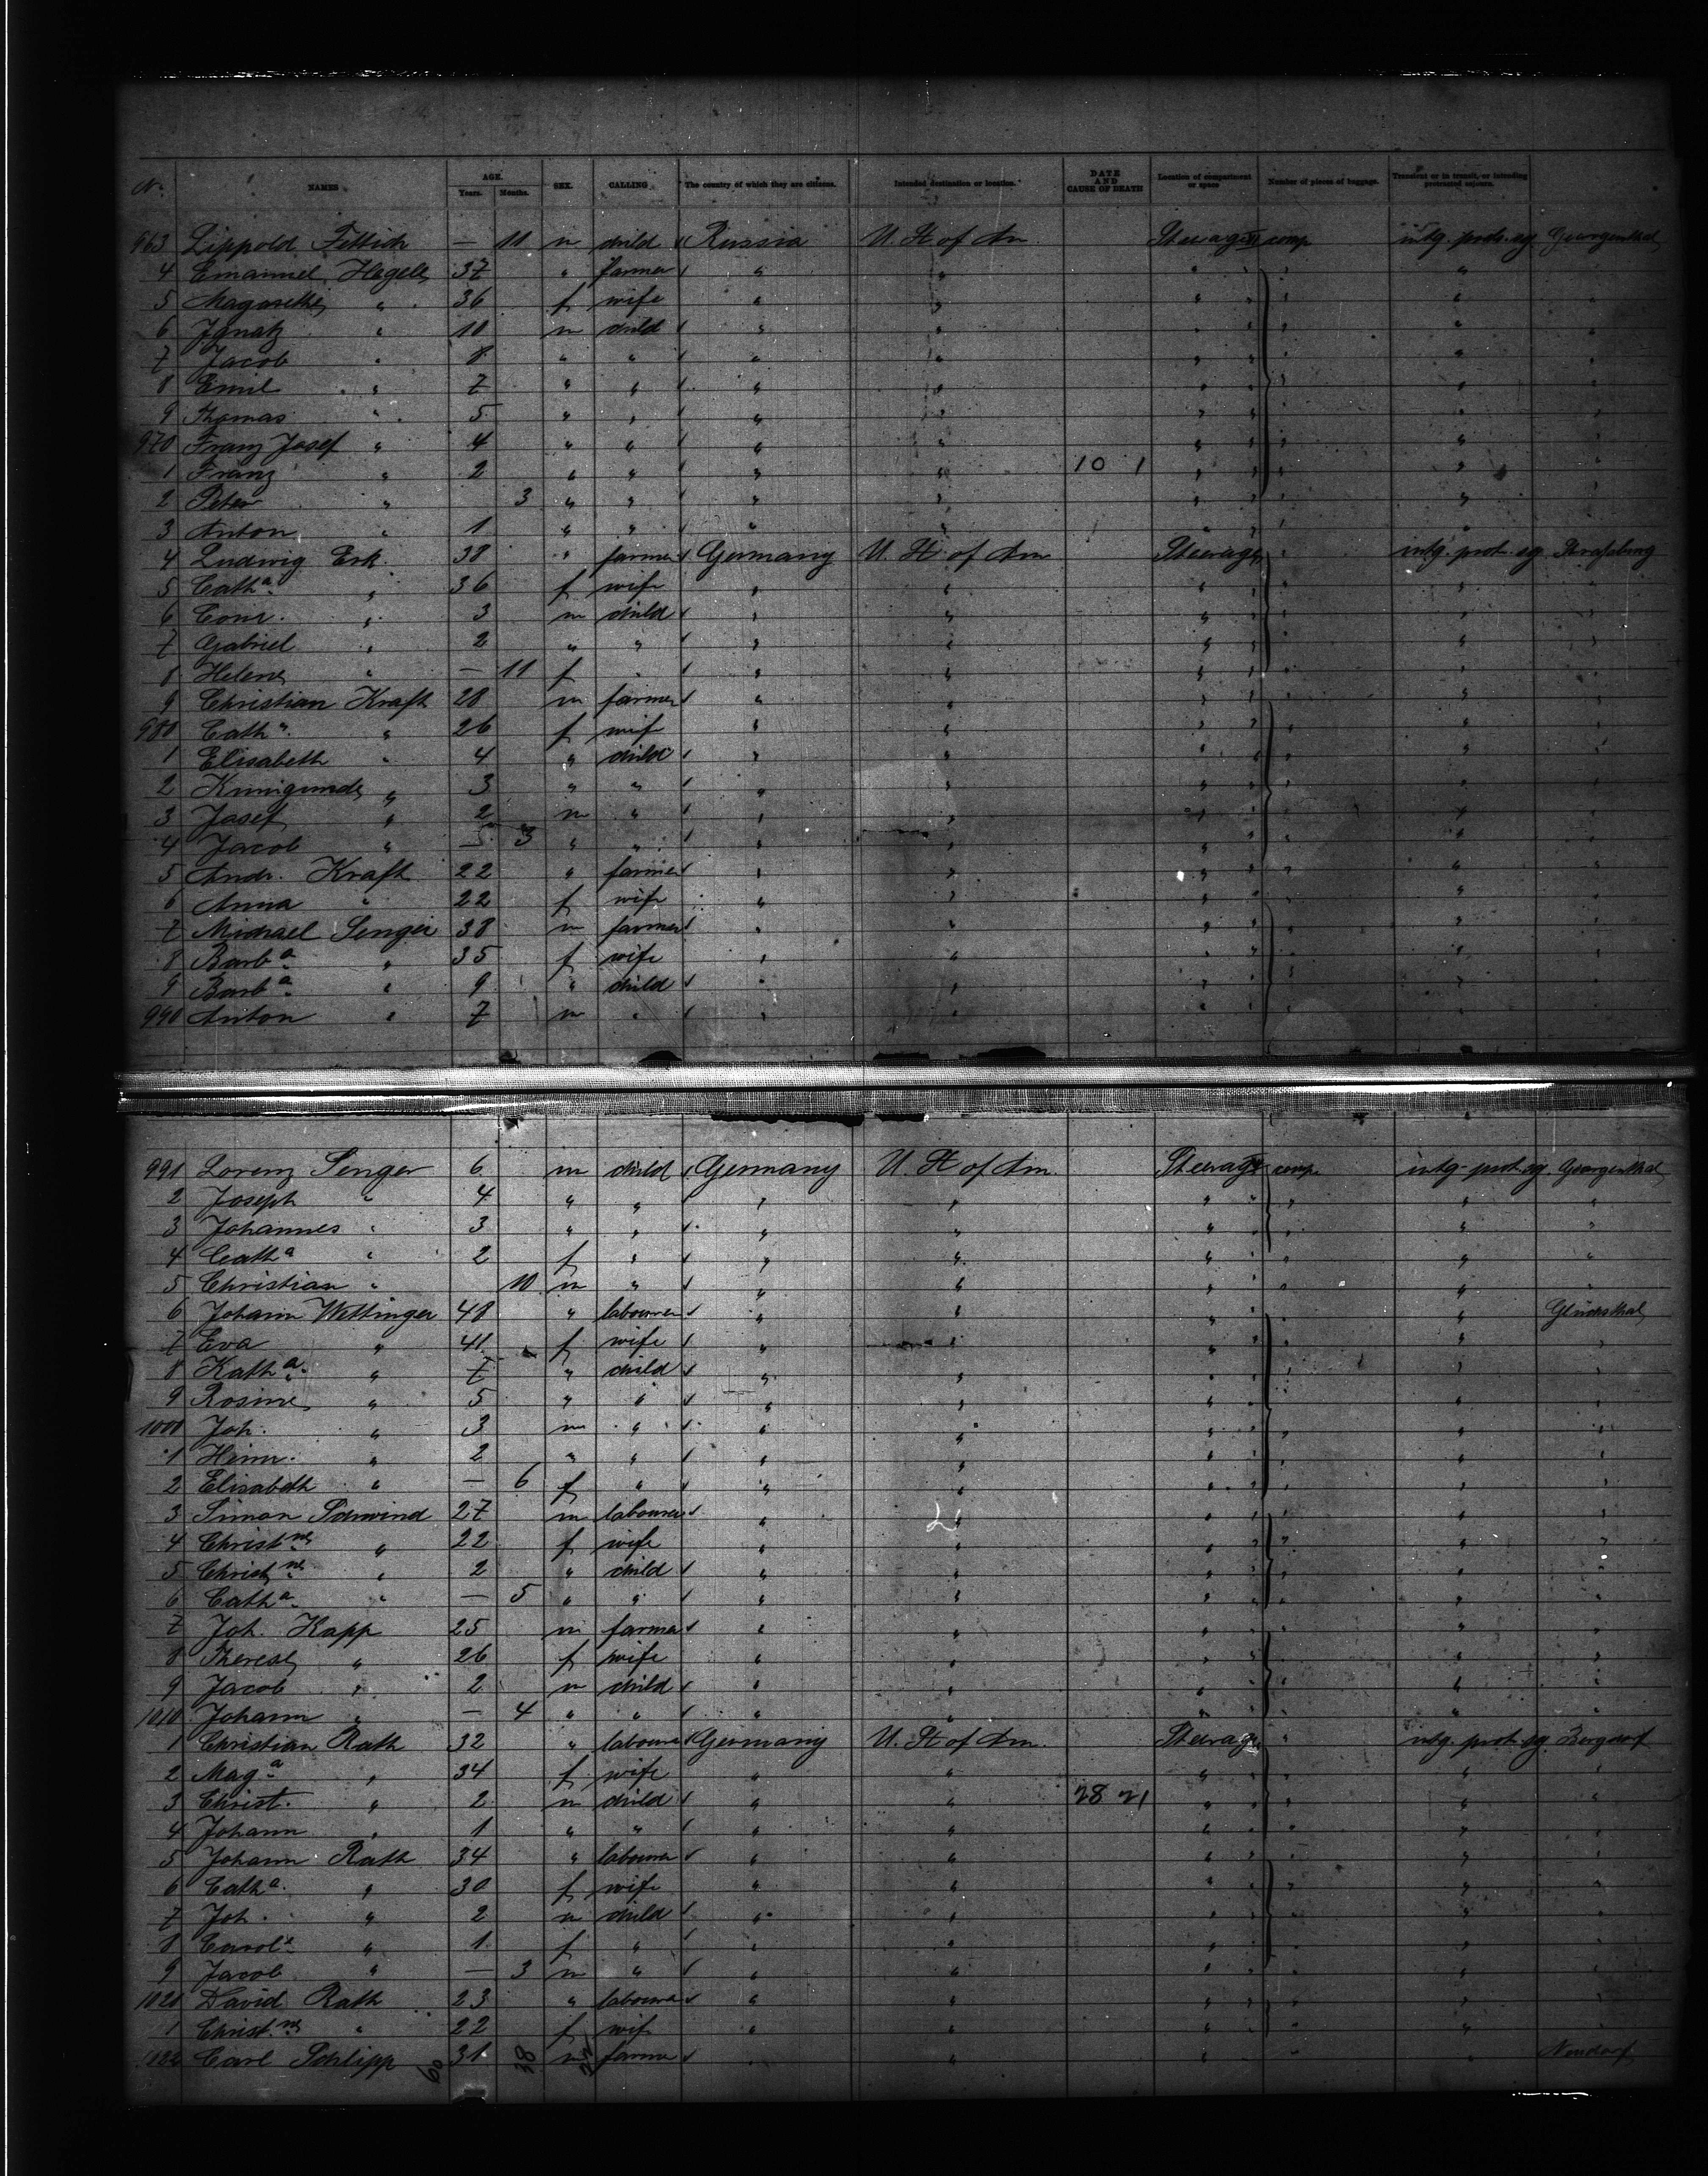 No. NAMES AGE. Years. Months. SEX. CALLING The country of which they are citizens. Intended destination or location. DATE AND CAUSE OF DEATH Location of compartment or space Number of pieces of baggage. Transient or in transit, or intending protracted sojourn.
963 Lippold Fettich — 11 m child Russia U. St of Am Steerage comp intg. prot. sg Georgenthal
4 Emanuel Hegele 37 " farmer " " " " "
5 Magarethe " 36 f wife " " " " "
6 Ignatz " 10 m child " " " " "
7 Jacob " 8 " " " " " " "
8 Emil " 7 " " " " " " "
9 Thomas " 5 " " " " " " "
970 Franz Josef " 4 " " " " " " "
1 Franz " 2 " " " " 10 1 " " "
2 Peter " 3 " " " " " " "
3 Anton " 1 " " " " " " "
4 Ludwig Erk 38 " farmer Germany U. St of Am Steerage " intg. prot. sg Strassburg
5 Cath a " 36 f wife " " " " "
6 Conr. " 3 m child " " " " "
7 Gabriel " 2 " " " " " " "
8 Helene " — 11 f " " " " " "
9 Christian Kraft 28 m farmer " " " " "
980 Cath a " 26 f wife " " " " "
1 Elisabeth " 4 " child " " " " "
2 Kunigunde " 3 " " " " " " "
3 Josef " 2 m " " " " " "
4 Jacob " — 3 " " " " " " "
5 Andr. Kraft 22 " farmer " " " " "
6 Anna " 22 f wife " " " " "
7 Michael Senger 38 m farmer " " " " "
8 Barb a " 35 f wife " " " " "
9 Barb a " 9 " child " " " " "
990 Anton " 7 m " " " " " "
991 Lorenz Senger 6 m child Germany U. St of Am Steerage comp intg. prot. sg Georgenthal
2 Joseph " 4 " " " " " " "
3 Johannes " 3 " " " " " " "
4 Cath a " 2 f " " " " " "
5 Christian " 10 m " " " " " "
6 Johann Wettinger 48 " labourer " " " " Glücksthal
7 Eva " 41 f wife " " " " "
8 Kath a " 7 " child " " " " "
9 Rosine " 5 " " " " " " "
1000 Joh. " 3 m " " " " " "
1 Heinr. " 2 " " " " " " "
2 Elisabeth " — 6 f " " " " " "
3 Simon Schwind 27 m labourer " " " " "
4 Christ ne " 22 f wife " " " " "
5 Christ ne " 2 " child " " " " "
6 Cath a " — 5 " " " " " " "
7 Joh. Kapp 25 m farmer " " " " "
8 Therese " 26 f wife " " " " "
9 Jacob " 2 m child " " " " "
1010 Johann " — 4 " " " " " " "
1 Christian Rath 32 " labourer Germany U. St of Am. Steerage " intg. prot. sg Bergdorf
2 Mag a " 34 f wife " " " " "
3 Christ. " 2 m child " " 28 21 " " "
4 Johann " 1 " " " " " " "
5 Johann Rath 34 " labourer " " " " "
6 Cath a " 30 f wife " " " " "
7 Joh. " 2 m child " " " " "
8 Carol e " 1 f " " " " " "
9 Jacob " — 3 m " " " " " "
1020 David Rath 23 " labourer " " " " "
1 Christ ne " 22 f wife " " " " "
1022 Carl Schlipp 31 m farmer " " " " Neudorf
60 38 22